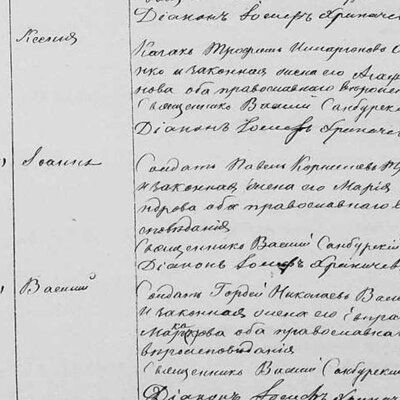 Діаконъ Іосифъ Хриначе
Ксенія
Казакъ Трофимъ
и законная жена его Агаф
нова оба православнаго вѣроиспо
Священникъ Василій Самбурскі
Діаконъ Іосифъ Хриначе
Іоаннъ
Солдатъ Павелъ Корнилievъ
и законная жена его Марія
оба православнаго в
споведанія
Священникъ Василій Самбурскій
Діаконъ Іосифъ Хриначев
Василій
Солдатъ Гордей Николаевъ Васи
и законная жена его
Макарова оба православна
вѣроисповѣданія
Священникъ Василій Самбурскій
Діаконъ Іосифъ Хриначе